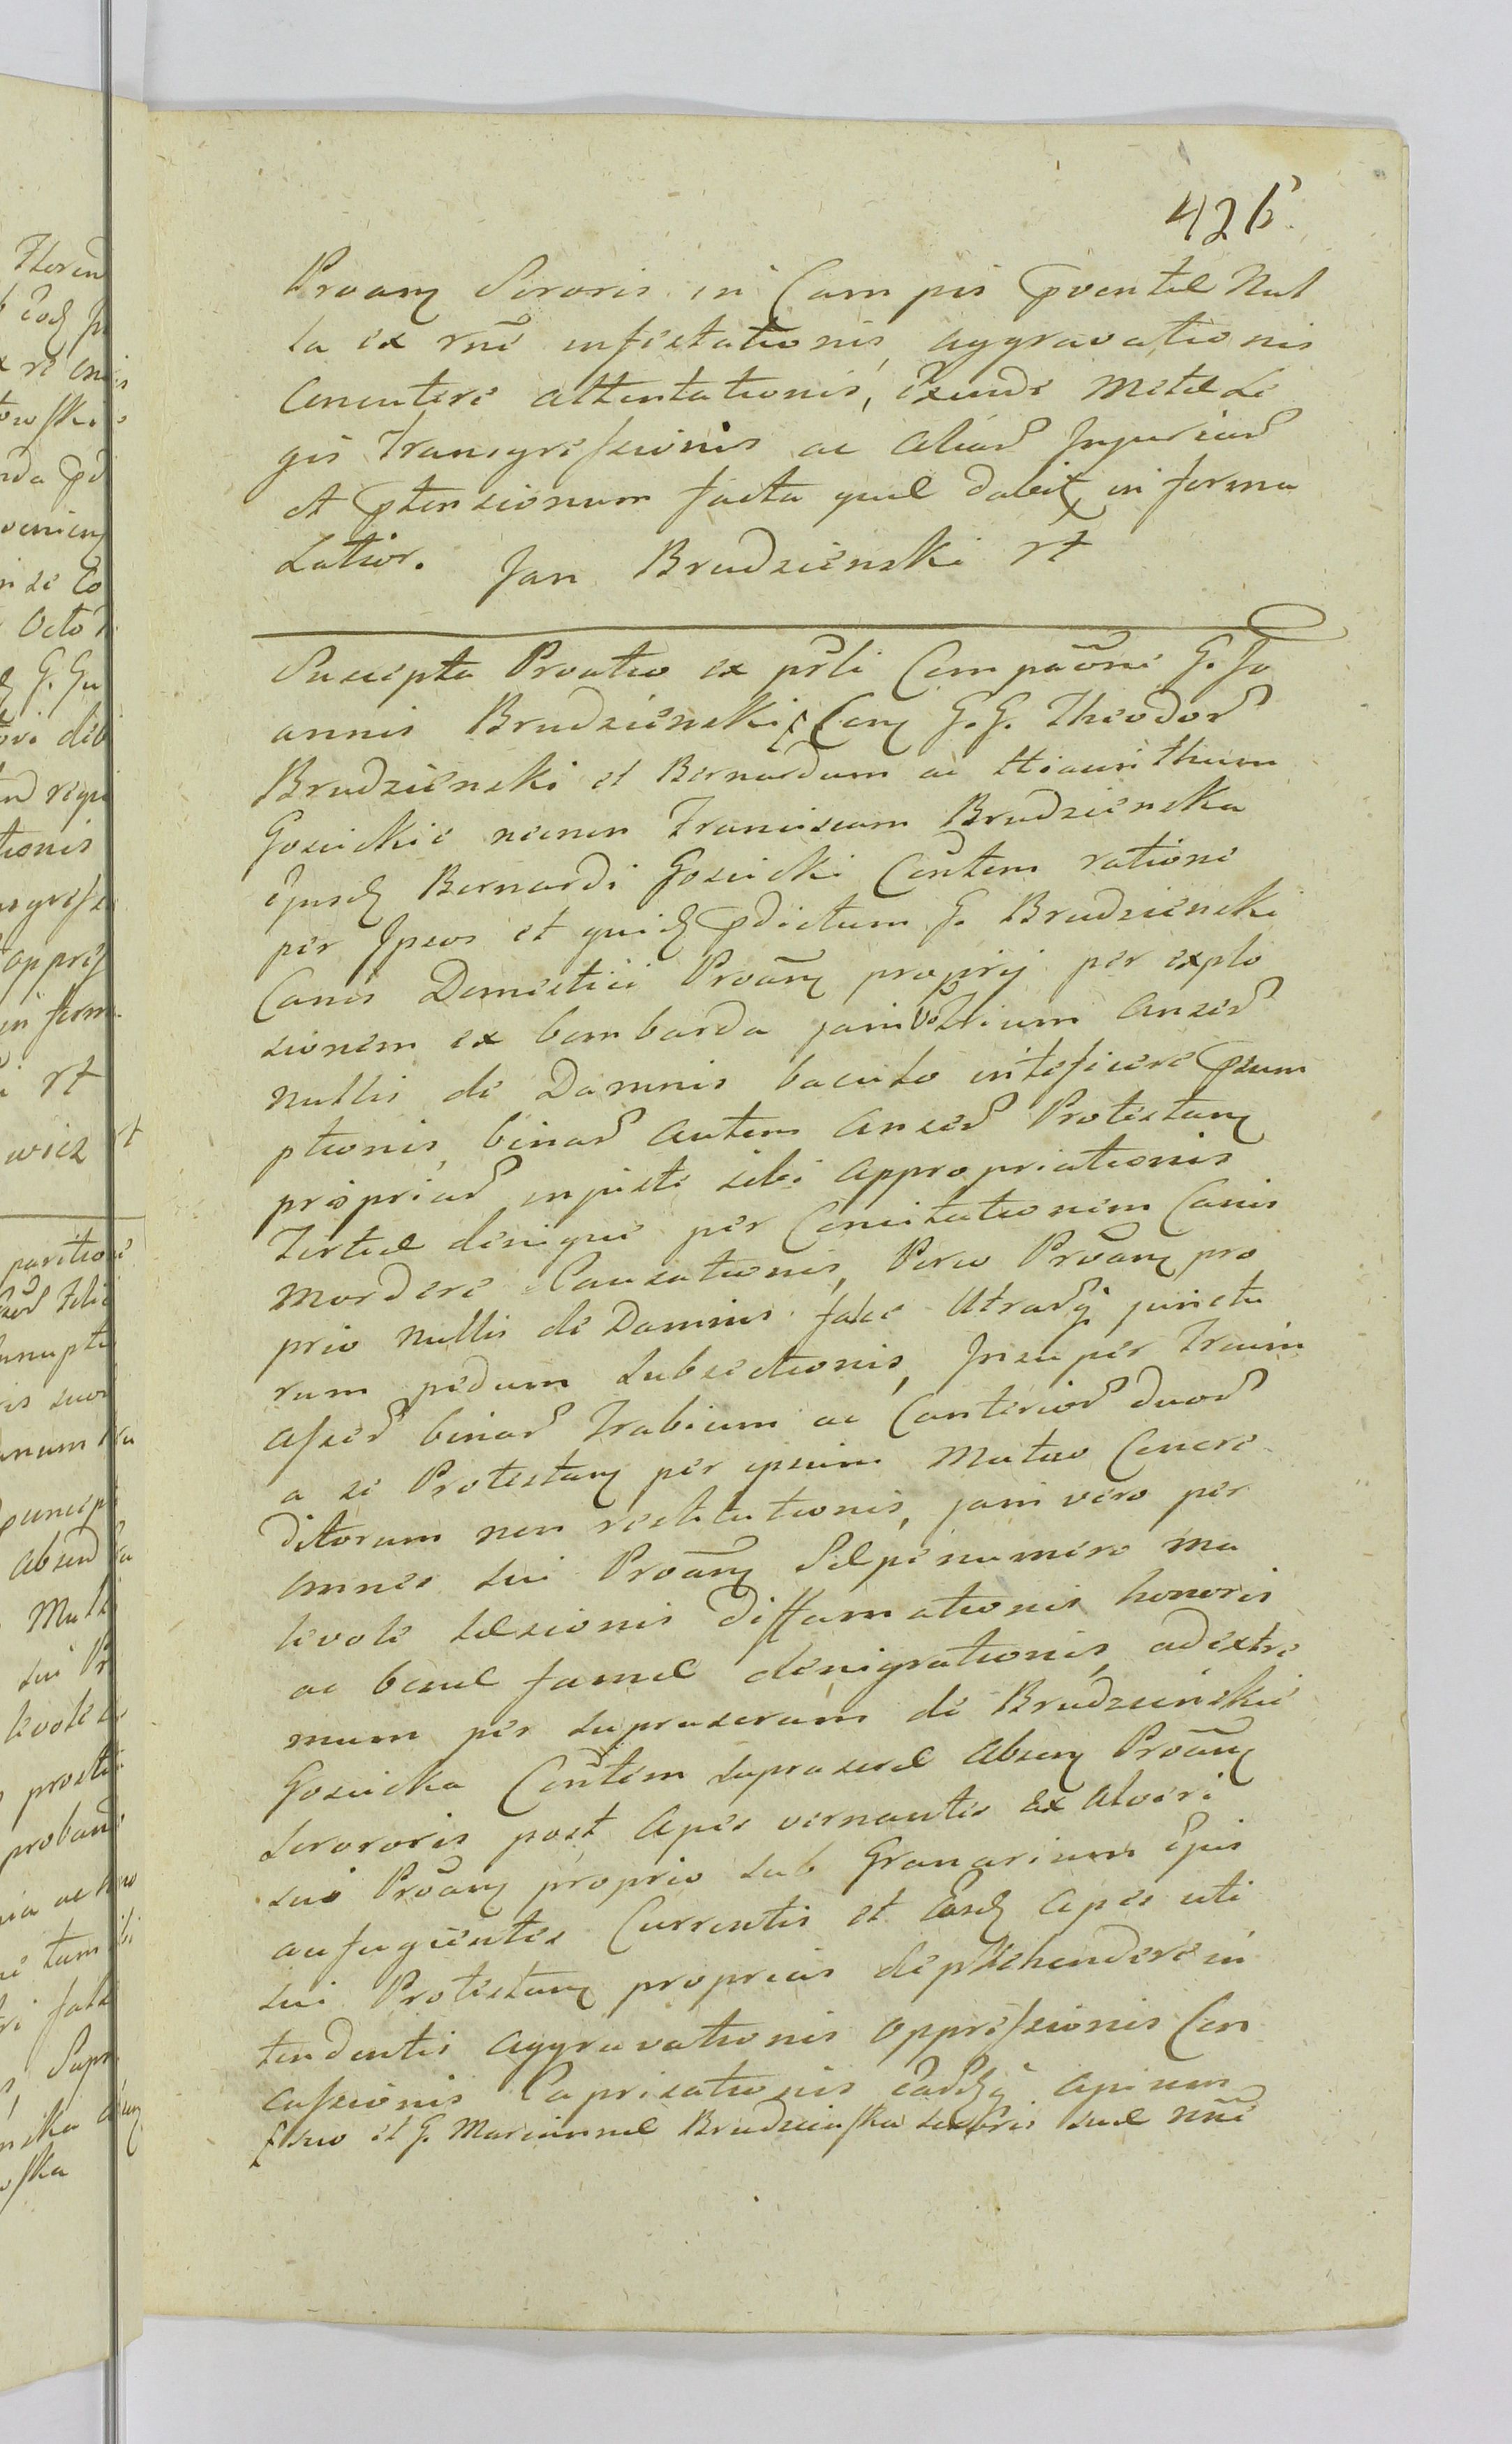 426
Proanz Sororis in Campis pventæ Nul
la ex rñe infestationis, aggravationis
Concutere attentationis, Exinde Metæ Le
gis Transgressionis ac aliar Injuriar
et ptensionum facta quæ dabitz in forma
Latior. Jan Brudzienski rt
Suscepta Proatio ex psli Compaõne G. Jo
annis Brudzienski Conz G. G. Theodor
Brudzienski et Bernardum ac Hiacinthum
Gosickie necnon Franciscam Brudzienska
Ejusd Bernardi Gosicki Contem ratione
per Ipsos et quid pdictum G. Brudzienski
Canis Domestici Proanz proprij per explo
sionem ex bombarda jam vo trium Anser
nullis de Damnis baculo inteficere psum
ptionis, binar autem Anser Protestanz
propriar injuste sibi appropriationis
Tertiæ denique per Concitationem Canis
mordere Causationis, Porco Proanz pro
prio nullis de Damnis falce Utrarq junctu
rum pedum Subsectionis, Insuper Trium
Asser binar Trabium ac Canterior duor
a se Protestanz per ipsum Mutuo Concre
ditorum non restitutionis, jam vero per
omnes sui Proanz Sæpe numero ma
levole Læsionis Diffamationis honoris
ac bonæ famæ denigrationis, adextre
mum per supraseram de Brudzienskie
Gosicka Contem supraseræ Absenz Proanz
Serororis post Apes vernantes Ex Alveri
suo Proanz proprio sub Granarium Ejus
aufugientes Currentis et Easd Apes uti
sui Protestanz proprias deprehendere in
tendentis aggravationis oppressionis Con
cussionis Caprisationis Eardq apium
suo et G. Mariannæ Brudzinska sororis suæ nñe